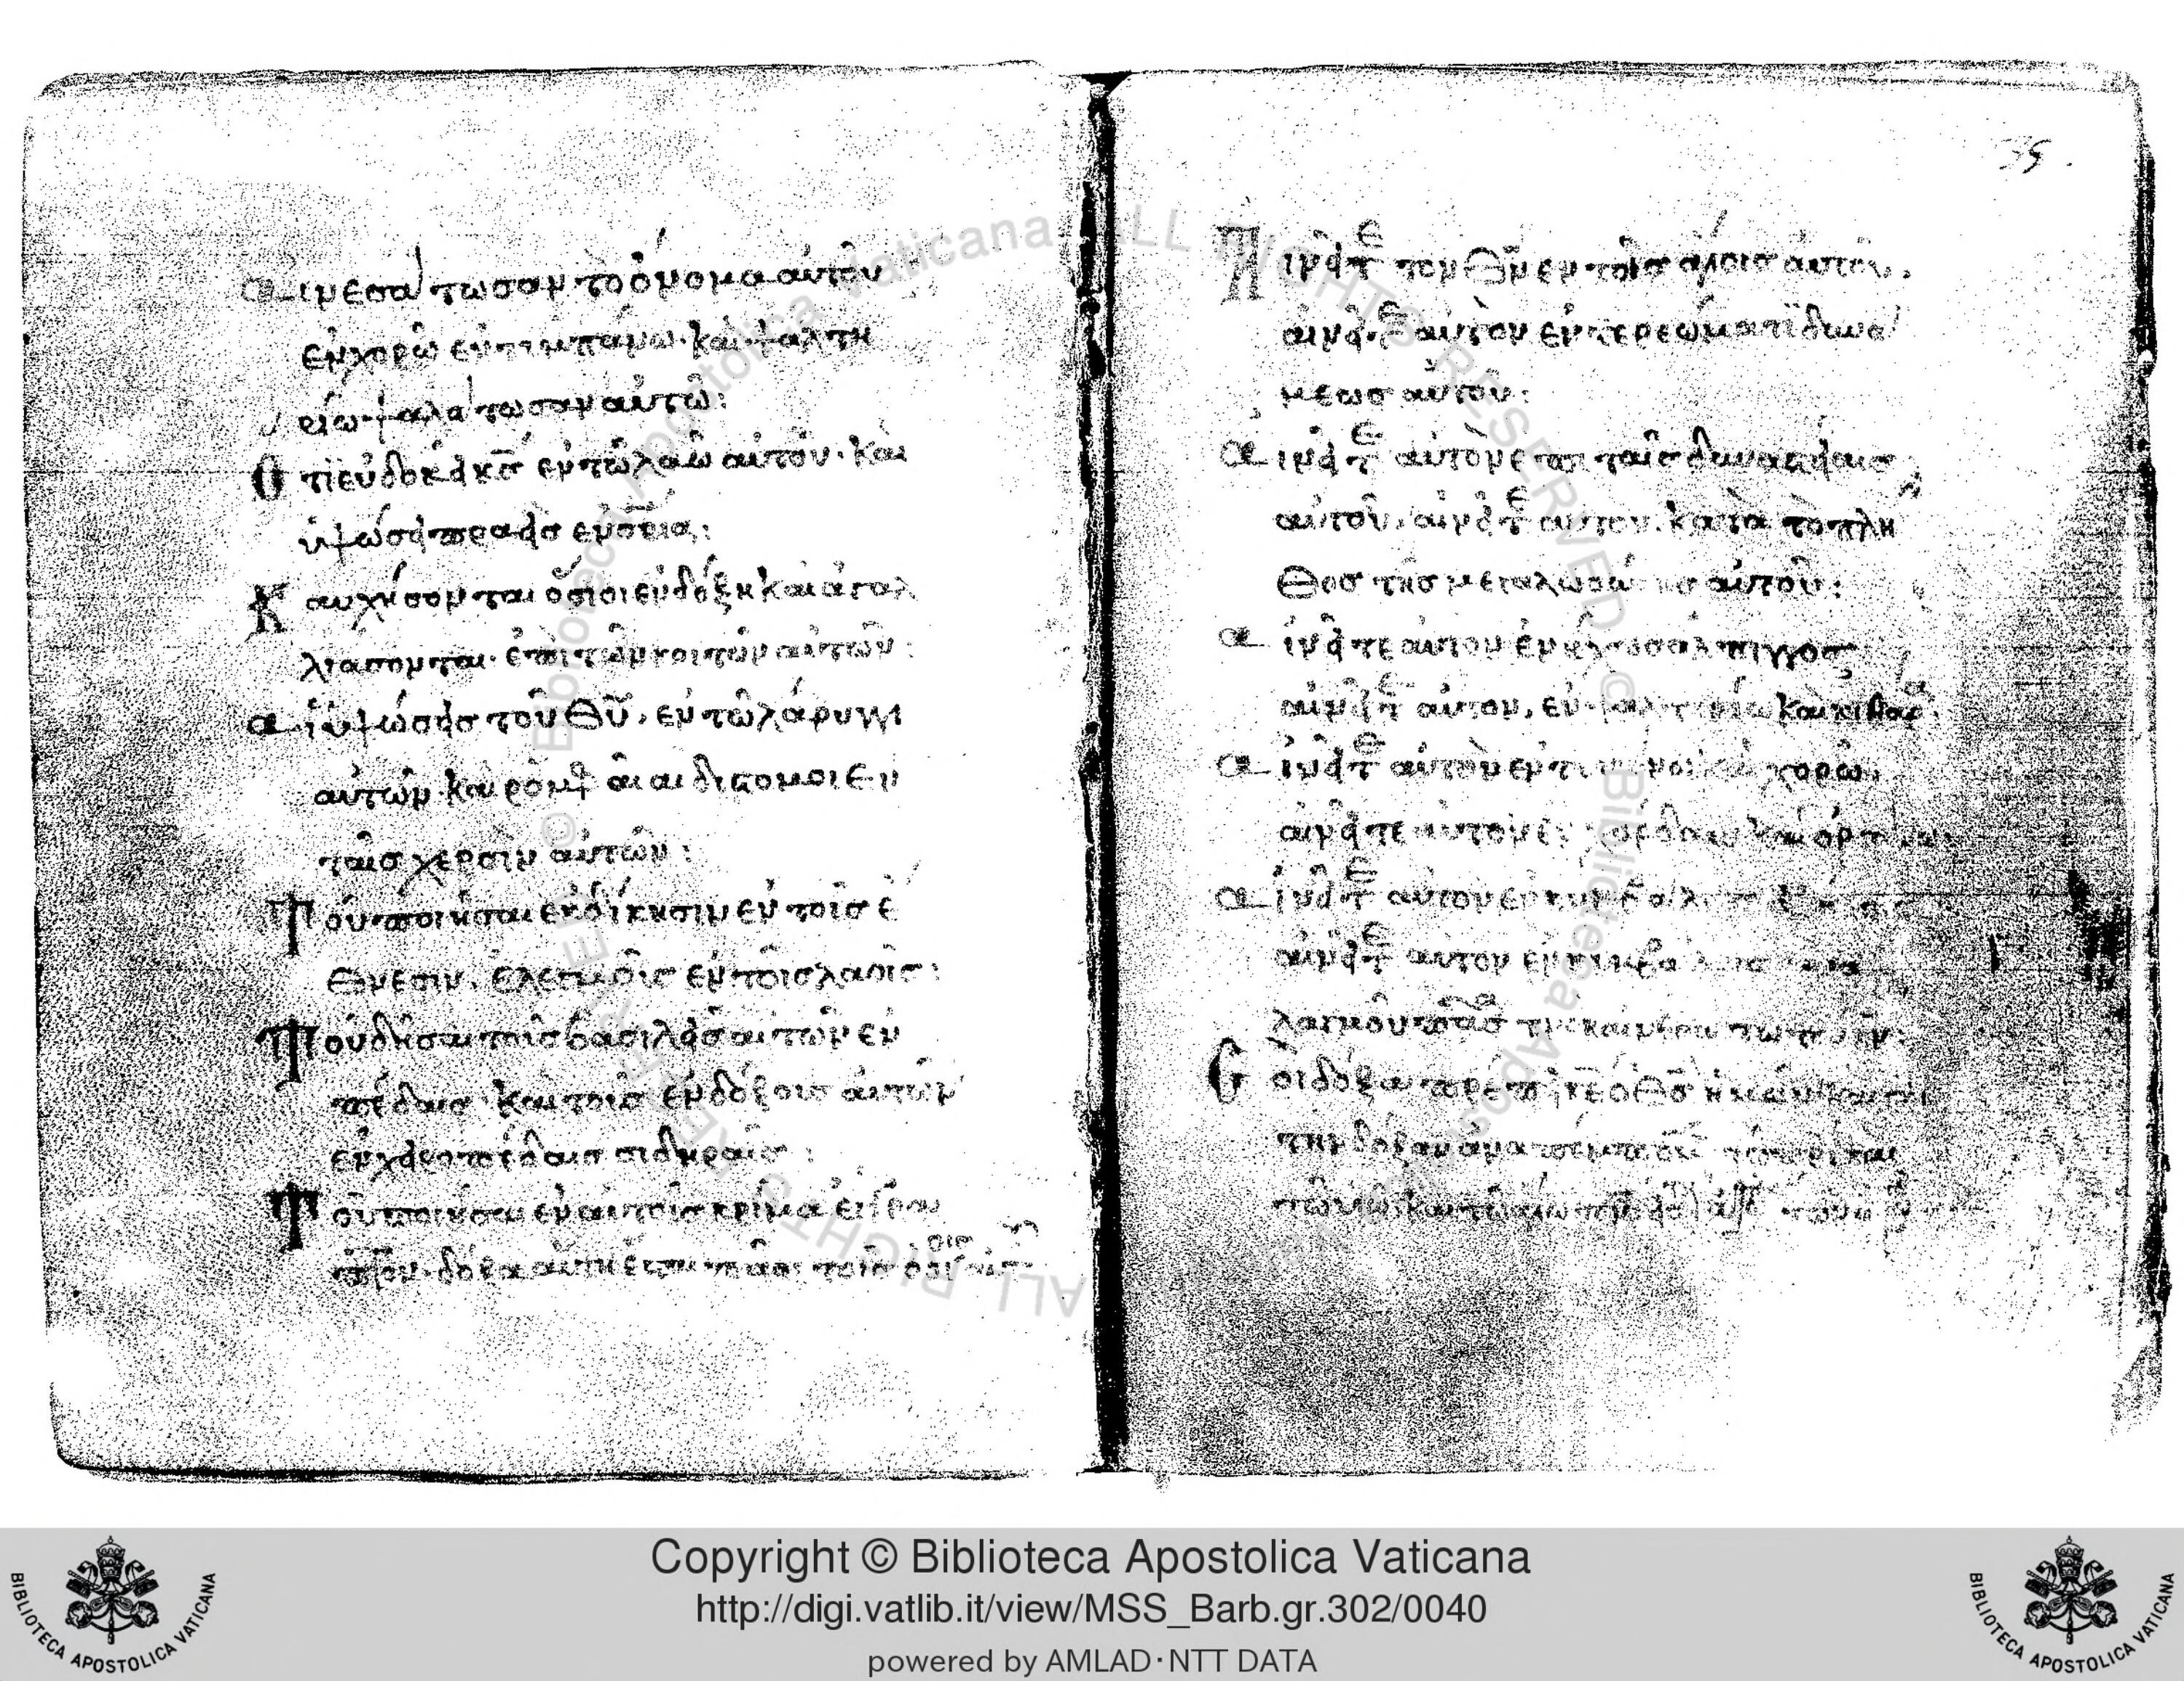 αινεσατωσαν το όνομα αυτου
εν χορω εν τυμπάνω· και ψαλτη
ρίω ψαλατωσαν αυτω:
Οτι ευδοκεί κς εν τω λαω αυτου· και
υψώσει πραεις εν σρια:
Καυχήσονται όσιοι εν δόξη και αγαλ
λιασονται· επι των κοιτων αυτων:
αι υψώσεις του Θυ, εν τω λάρυγγι
αυτων· και ρομφ αιαι διστομοι εν
ταις χερσιν αυτων:
Του ποιησαι εκδίκησιν εν τοις έ
θνεσιν, ελεγμους εν τοις λαοις:
Του δησαι τους βασιλεις αυτων εν
πέδαις· και τους ενδόξους αυτων
εν χειροπέδαις σιδηραις:
Του ποιησαι εν αυτοις κρίμα έγγρα
πτον· δόξα αυτη έσται πασι τοις οσίοις αυτ
35.
Αινειτε τον Θν εν τοις αγίοις αυτου.
αινειτε αυτον εν στερεώματι δυνά
μεως αυτου:
αινειτε αυτον επι ταις δυναστείαις
αυτου, αινειτε αυτον. κατα το πλη
θος της μεγαλωσύνης αυτου:
αινειτε αυτον εν ηχω σάλπιγγος
αινειτε αυτον, εν ψαλτηρίω και κιθάρα
αινειτε αυτον εν τυμπάνω και χορω,
αινειτε αυτον εν χορδαις και οργ
αινειτε αυτον εν κυμβάλοις
αινειτε αυτον εν κυμβάλοις
λαγμου πασα
Σοι δόξα πρέπει κε ο Θς ημων και
την δόξαν αναπέμπομεν τω πρι και
τω υιω και τω αγιω πνι
Copyright © Biblioteca Apostolica Vaticana
http://digi.vatlib.it/view/MSS_Barb.gr.302/0040
powered by AMLAD·NTT DATA
BIBLIOTECA APOSTOLICA VATICANA
BIBLIOTECA APOSTOLICA VATICANA